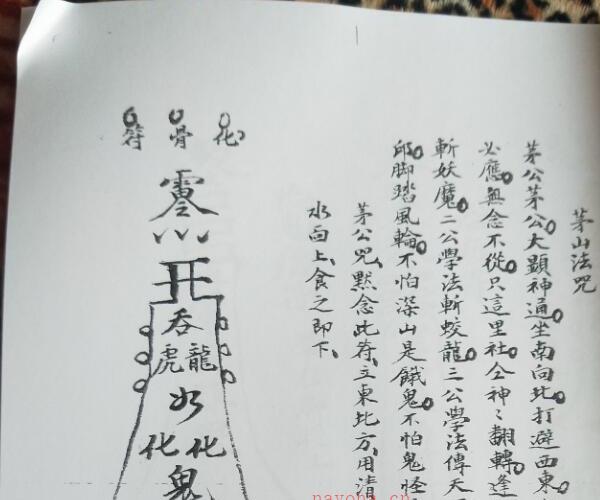 茅山法咒
茅公茅公大顯神通坐南向北打避西東
必應無念不從只這里社仝神〻翻轉逢
斬妖魔二公學法斬蛟龍三公學法傳天
邱脚踏風輪不怕深山是餓鬼不怕鬼怪
茅公咒、默念此符、立東北方、用清
水面上、食之即下、
化骨符
開
吞
龍虎
化化
鬼
nayona.cn